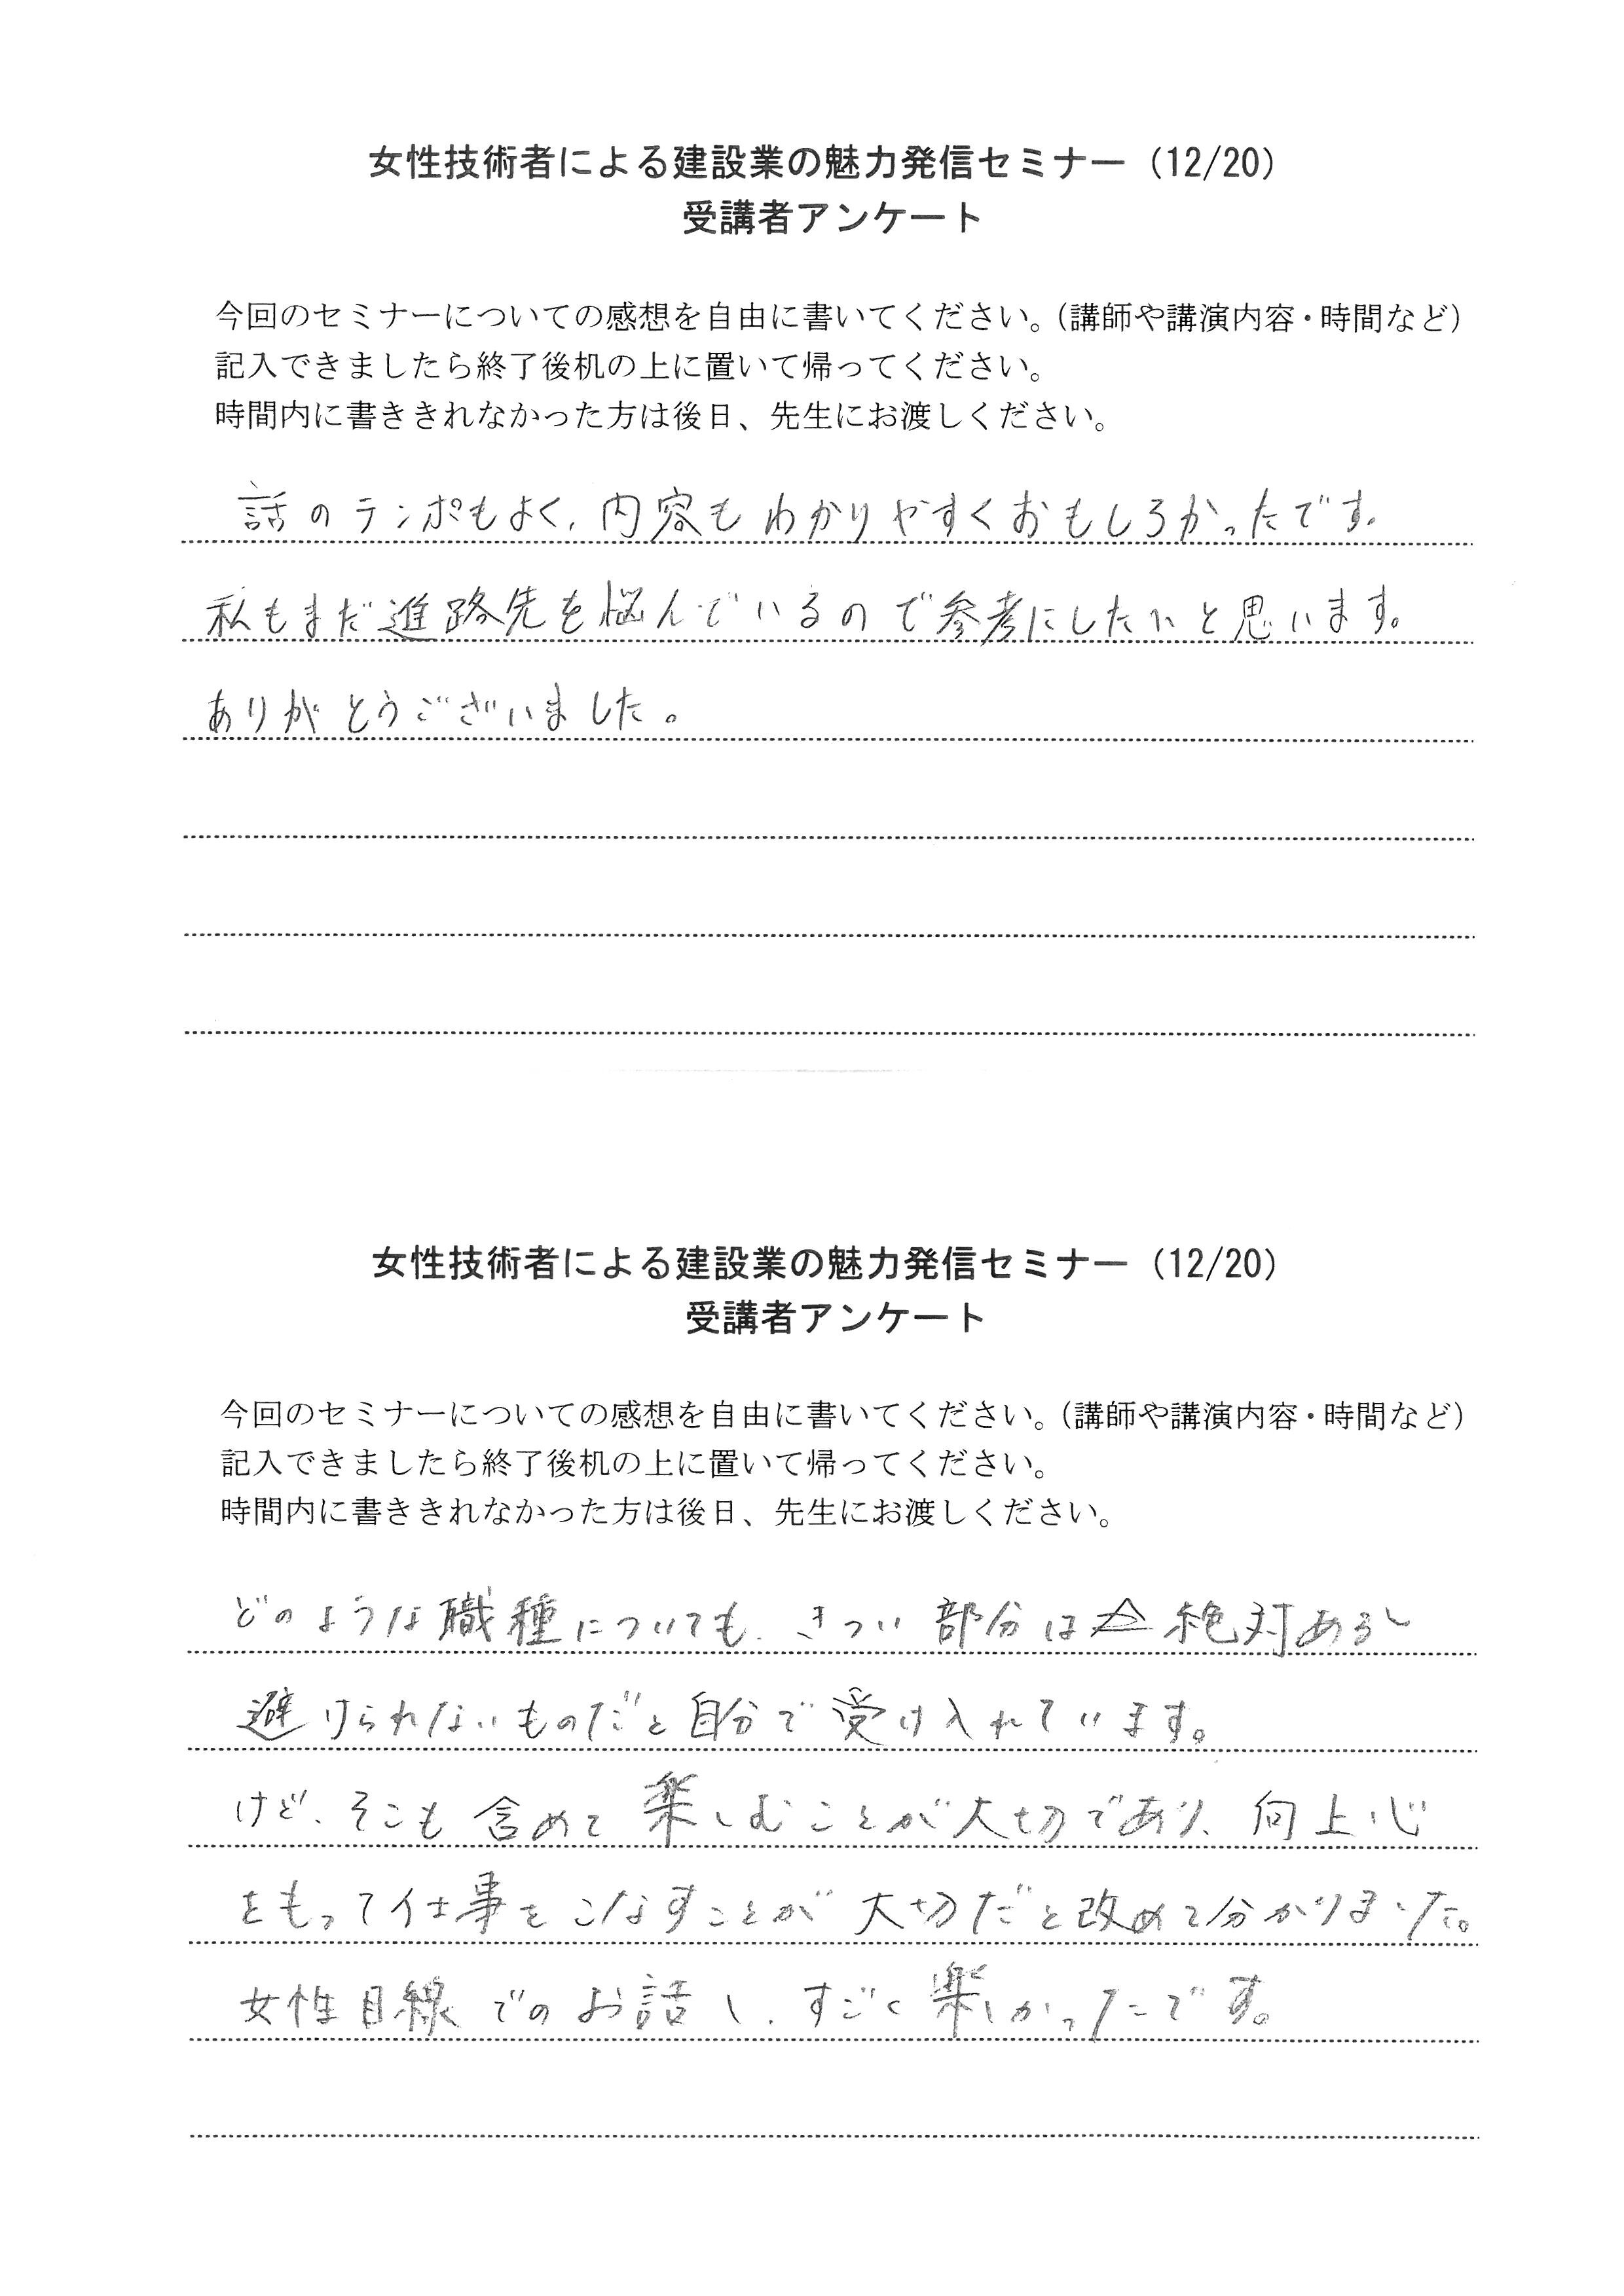 女性技術者による建設業の魅力発信セミナー（12/20）
受講者アンケート
今回のセミナーについての感想を自由に書いてください。（講師や講演内容・時間など）
記入できましたら終了後机の上に置いて帰ってください。
時間内に書ききれなかった方は後日、先生にお渡しください。
話のテンポもよく、内容もわかりやすくおもしろかったです。
私もまだ進路先を悩んでいるので参考にしたいと思います。
ありがとうございました。
女性技術者による建設業の魅力発信セミナー（12/20）
受講者アンケート
今回のセミナーについての感想を自由に書いてください。（講師や講演内容・時間など）
記入できましたら終了後机の上に置いて帰ってください。
時間内に書ききれなかった方は後日、先生にお渡しください。
どのような職種についても、きつい部分は絶対あるし
避けられないものだと自分で受け入れています。
けど、そこも含めて楽しむことが大切であり、向上心
をもって仕事をこなすことが大切だと改めて分かりました。
女性目線でのお話し、すごく楽しかったです。